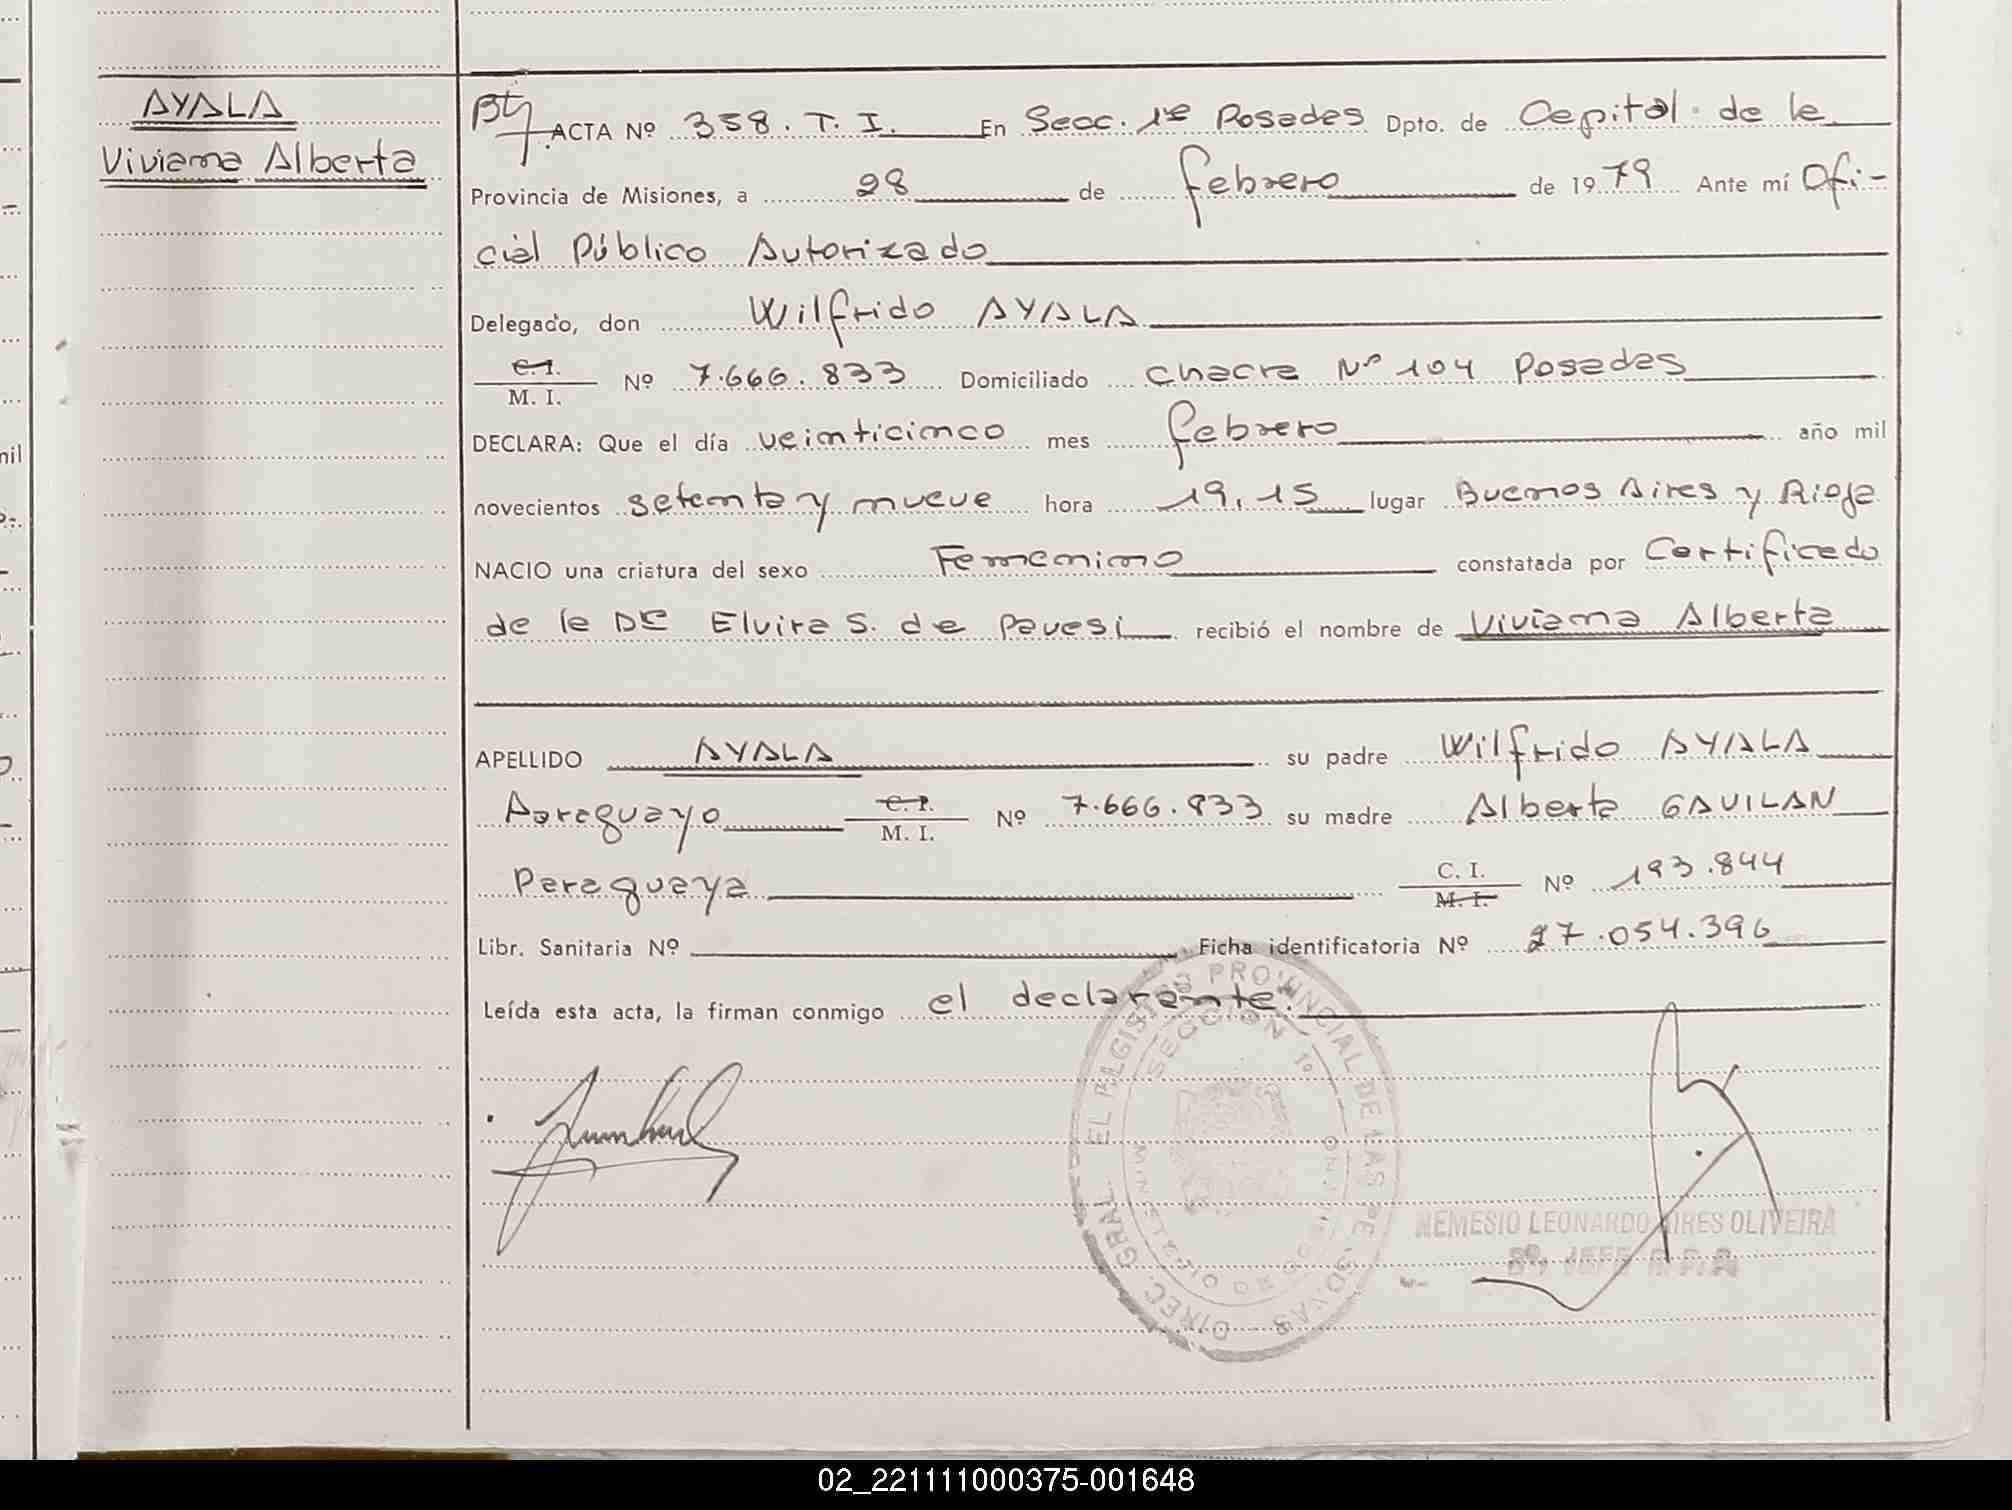 AYALA
Viviana Alberta
ACTA Nº 358. T. I. En Secc. 1ra Posadas Dpto. de Capital de la
Provincia de Misiones, a 28 de febrero de 1979 Ante mí Ofi-
cial Público Autorizado
Delegado, don Wilfrido AYALA
C. I.
M. I. Nº 7.666.833 Domiciliado Chacra Nº 104 Posadas
DECLARA: Que el día veinticinco mes febrero año mil
novecientos setenta y nueve hora 19,15 lugar Buenos Aires y Rioja
NACIO una criatura del sexo Femenino constatada por Certificado
de la Dra Elvira S. de Pavesi recibió el nombre de Viviana Alberta
APELLIDO AYALA su padre Wilfrido AYALA
Paraguayo C. I. Nº 7.666.833 su madre Alberta GAVILAN
M. I.
Paraguaya C. I. Nº 193.844
M. I.
Libr. Sanitaria Nº Ficha identificatoria Nº 27.054.396
Leída esta acta, la firman conmigo el declarante.
DIREC. GRAL. DEL REGISTRO PROVINCIAL DE LAS PERSONAS
SECCION 1º
NEMESIO LEONARDO AIRES OLIVEIRA
02_221111000375-001648